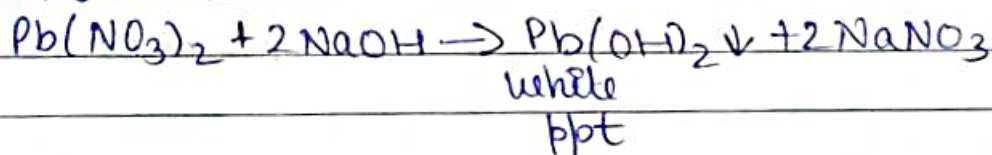 Pb(NO₃)₂ + 2NaOH → Pb(OH)₂↓ + 2NaNO₃
white
ppt